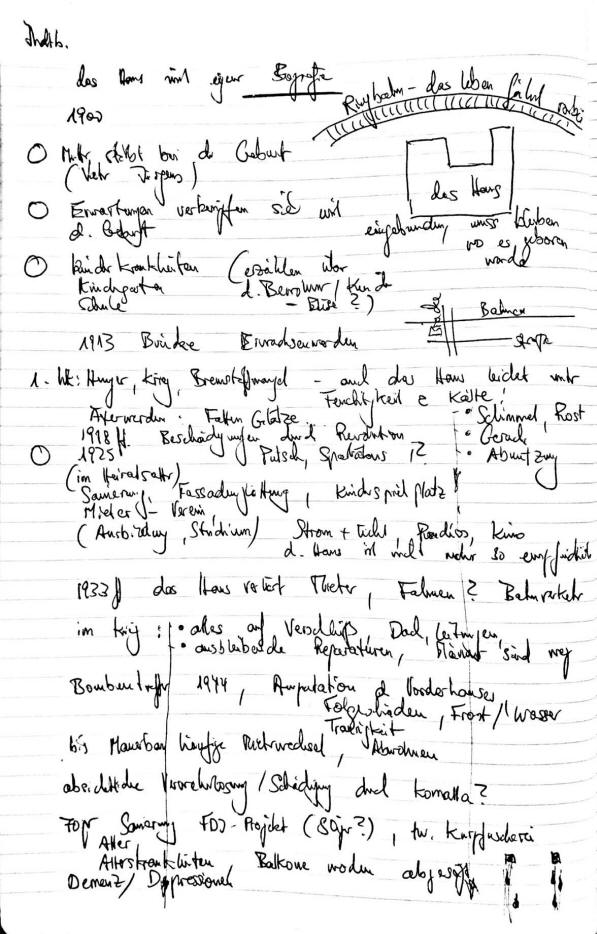 das Haus mit eigener Biografie
Ringbahn - das Leben fährt vorbei
1900
Mutter stirbt bei d. Geburt
das Haus
Erwartungen verknüpfen sich mit
d. Geburt
eingebunden, muss bleiben
wo es geboren
wurde
Kinderkrankheiten (erzählen über
Kindergarten d. Bewohner / Kinder
Schule - Elise ?)
Brücke Bahnen
Straße
1913 Brücke Erwachsenwerden
1. Wk: Hunger, Krieg, Brennstoffmangel - und das Haus leidet unter
Feuchtigkeit & Kälte!
Älterwerden. Falten Glatze
• Schimmel, Rost
1918 ff. Beschädigungen durch Revolution
• Geruch
1925 Putsch, Spartakus, ?
• Abnutzung
(im Heiratsalter)
Sanierung, Fassadenglättung, Kinderspielplatz
Mieter - Verein,
(Ausbildung, Studium) Strom + Licht, Radios, Kino
d. Haus ist nicht mehr so empfindlich
1933 ff das Haus verliert Mieter, Fahnen ? Bahnverkehr
im Krieg : • alles auf Verschleiß Dach, Leitungen,
• ausbleibende Reparaturen, Männer sind weg
Bombentreffer 1944, Amputation d Vorderhauses
Folgeschäden, Frost/Wasser
Traurigkeit
bis Mauerbau häufige Mieterwechsel, Abwohnen
absichtliche Verwahrlosung / Schädigung durch
70ger Sanierung FDJ-Projekt (80ger?), tw. Kurpfuscherei
Alter,
Alterskrankheiten, Balkone werden abgesägt
Demenz / Depressionen